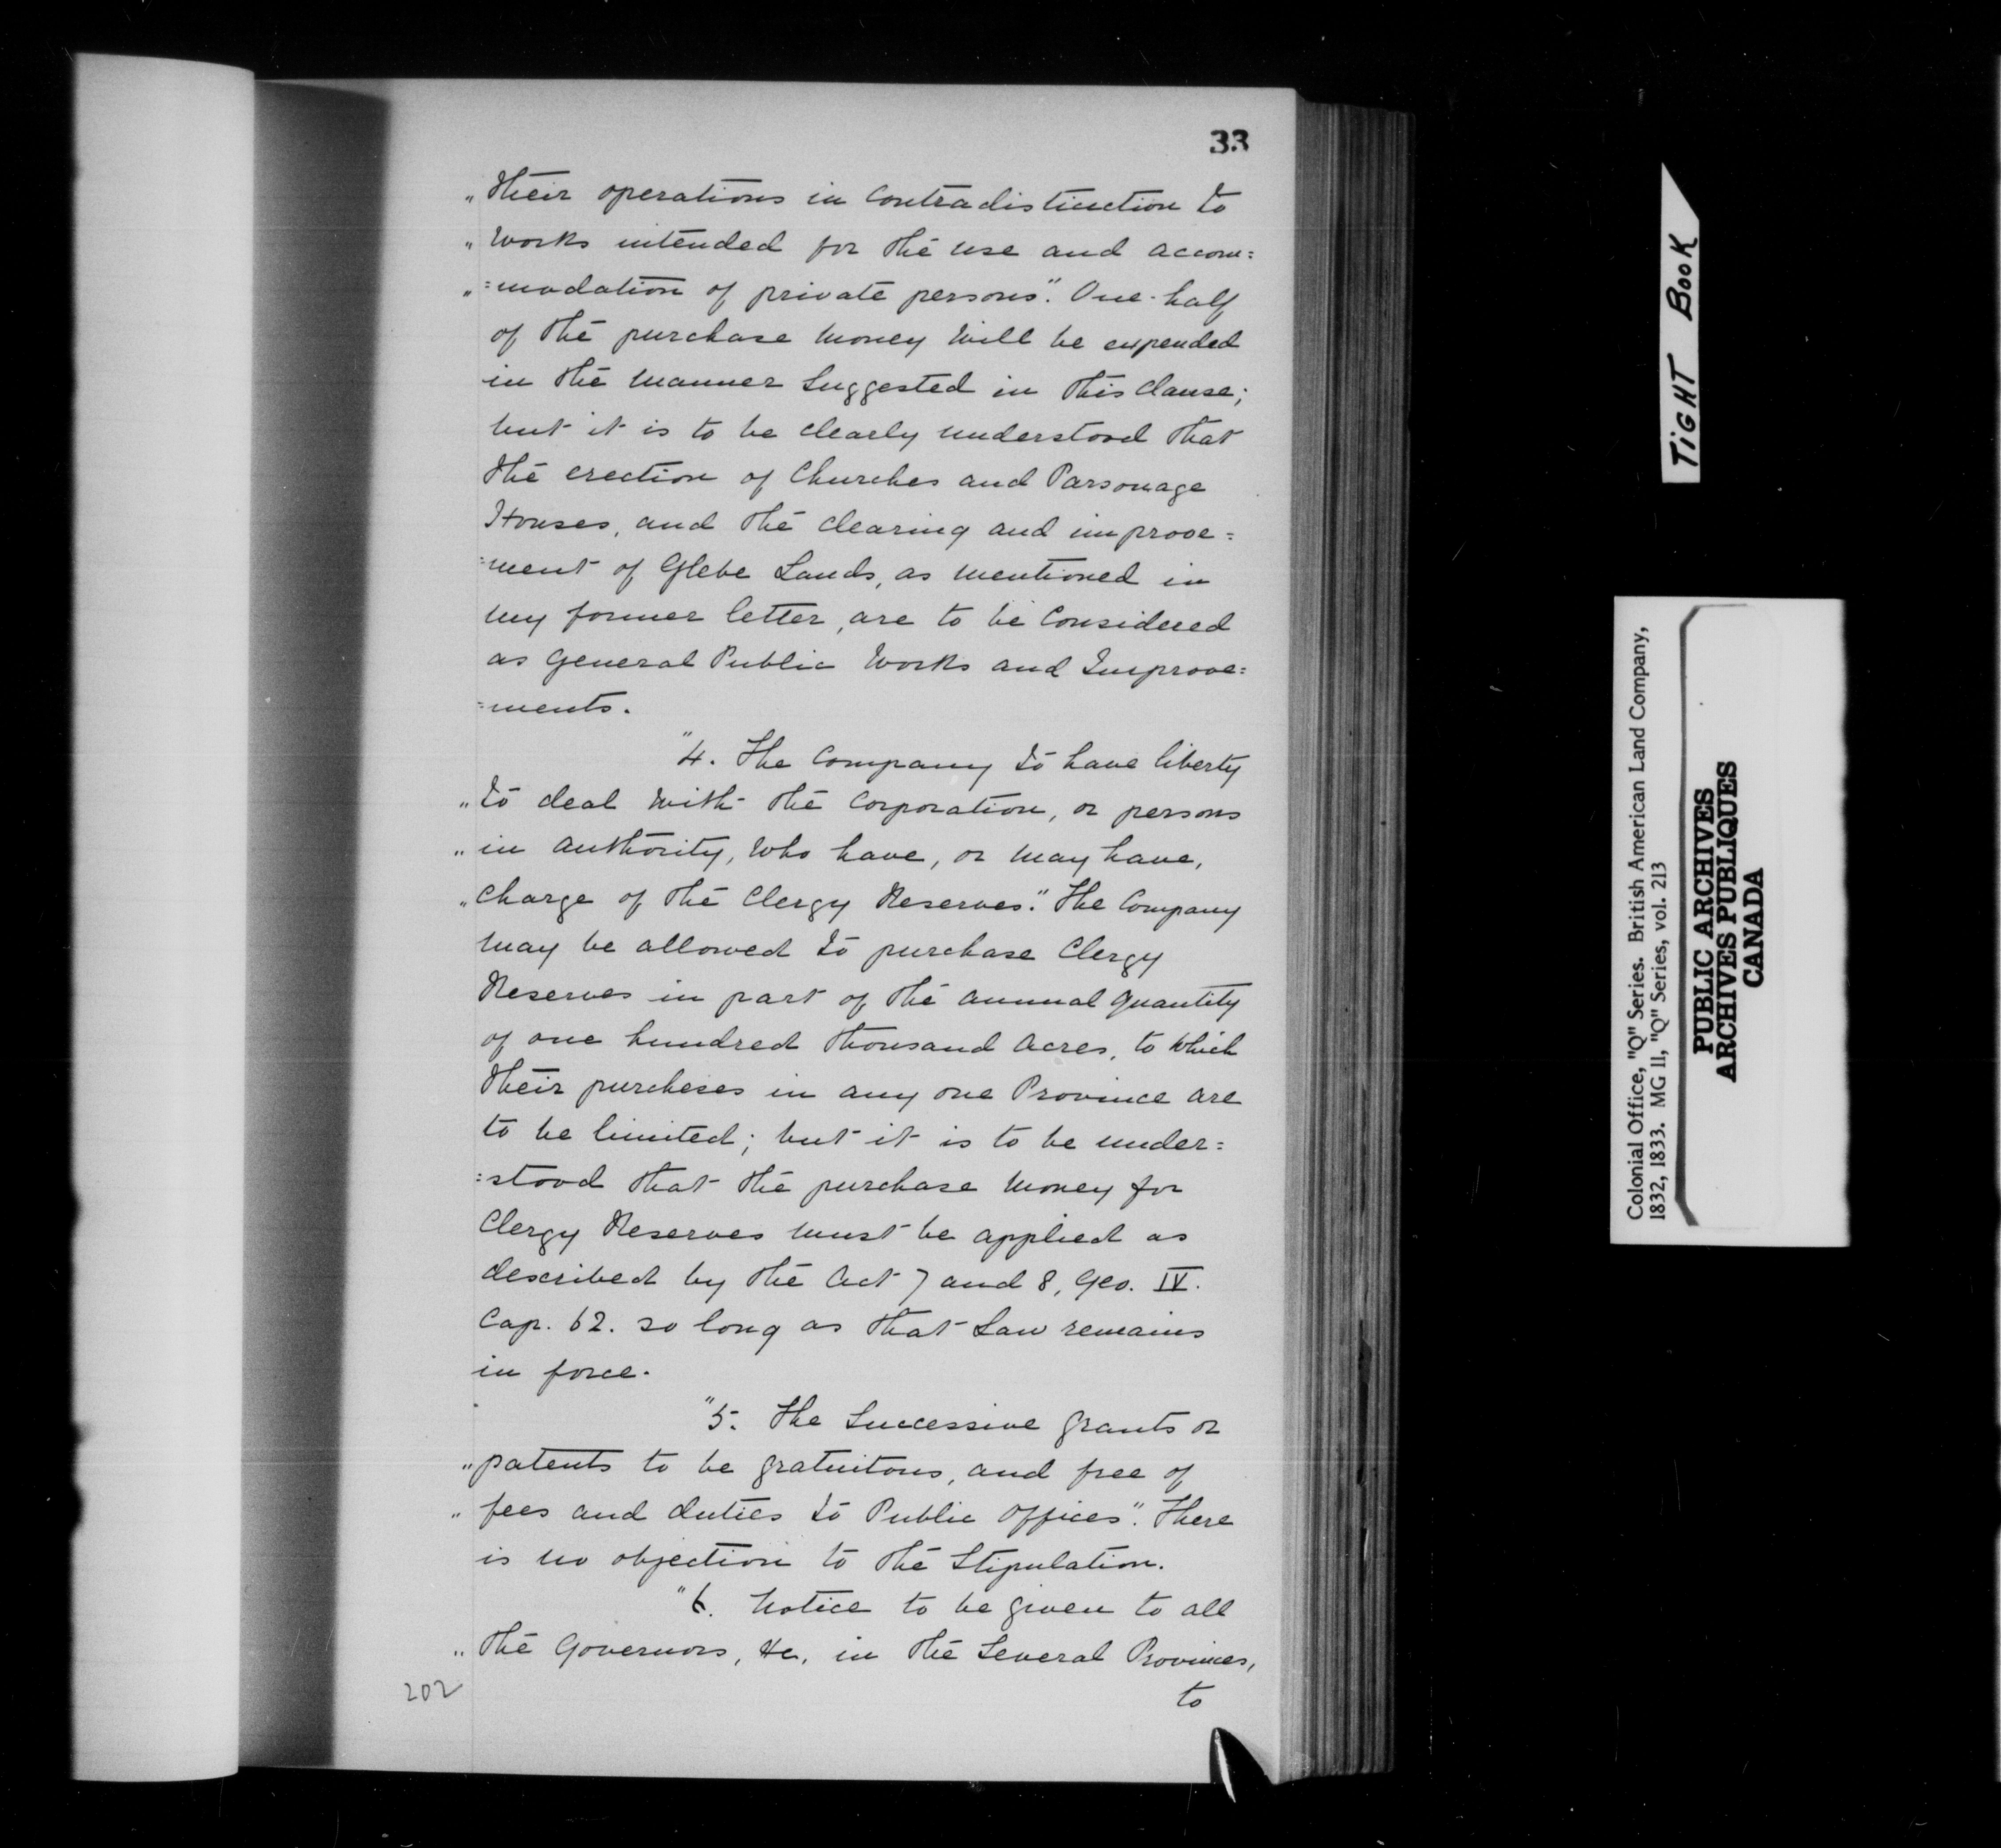 33
" their operations in contradistinction to
" works intended for the use and accom=
" =modation of private persons." One-half
of the purchase money will be expended
in the manner suggested in this clause;
but it is to be clearly understood that
the erection of Churches and Parsonage
Houses, and the clearing and improve=
=ment of Glebe Lands, as mentioned in
my former letter, are to be considered
as general Public Works and Improve=
=ments.
"4. The Company to have liberty
" to deal with the Corporation, or persons
" in authority, who have, or may have,
" charge of the Clergy Reserves." The Company
may be allowed to purchase Clergy
Reserves in part of the annual quantity
of one hundred thousand acres, to which
their purcheses in any one Province are
to be limited; but it is to be under=
=stood that the purchase money for
Clergy Reserves must be applied as
described by the Act 7 and 8, Geo. IV.
Cap. 62. so long as that Law remains
in force.
"5. The Successive grants or
" patents to be gratuitous, and free of
" fees and duties to Public Offices." There
is no objection to the Stipulation.
"6. Notice to be given to all
" the Governors, &c, in the several Provinces,
to
202
TIGHT BOOK
Colonial Office, "Q" Series. British American Land Company,
1832, 1833. MG 11, "Q" Series, vol. 213
PUBLIC ARCHIVES
ARCHIVES PUBLIQUES
CANADA